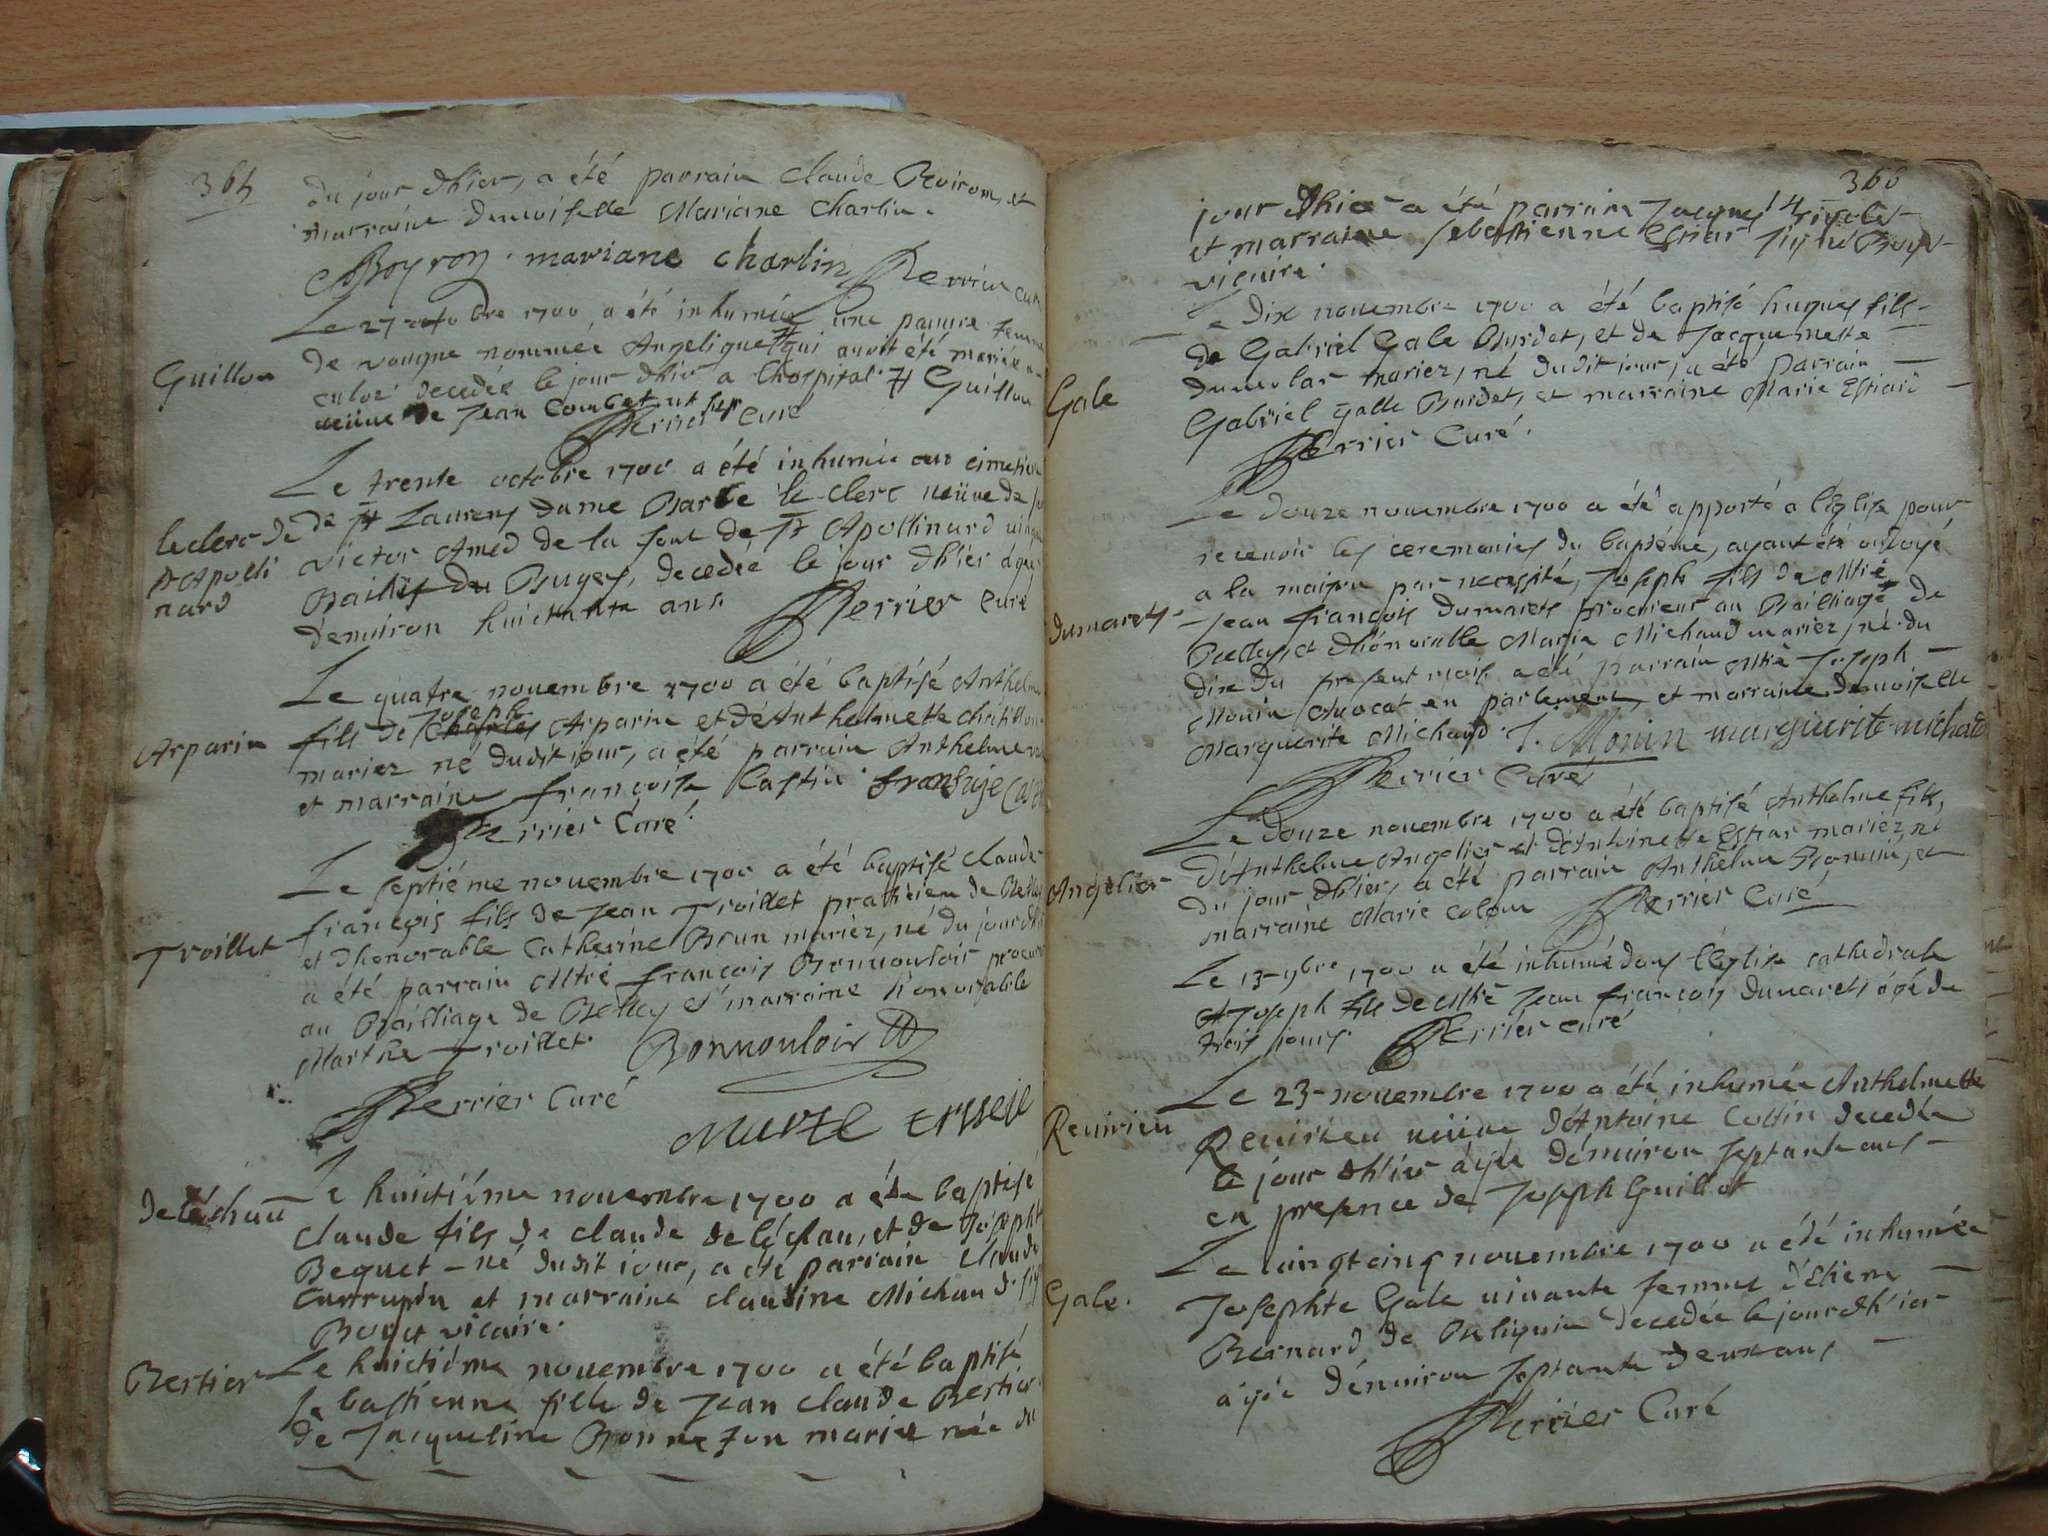 364
du jour d'hier, a été parrain Claude Boiron, et
marraine demoiselle Mariane Charlin.
Boyron. mariane charlin Perrier curé
Le 27 octobre 1700 a été inhumée une pauvre femme
Guillon
de nommée Angelique # qui avoit été mariée
decedée le jour d'hier a l'hospital. # Guillon
veüve de Jean
Perrier curé
Le trente octobre 1700 a été inhumée au cimetiere
de St Laurens dame Barbe le clerc veüve de
leclerc de
St Apolli
nard
victor Amed de la font de St Apollinard
Baillif du Bugey, decedée le jour d'hier agée
d'environ huictante ans. Perrier curé
Le quatre novembre 1700 a été baptisé Anthelme
Arparin
fils de Joseph Arparin et d'Anthelmette chatillon
mariez né dudit jour, a été parrain Anthelme
et marraine françoise Castin.
Perrier Curé.
Le septiéme novembre 1700 a été baptisé claude
françois fils de Jean Troillet praticien de Belley
Troillet
et d'honorable Catherine Brun mariez, né du jour d'hier
a été parrain Mtre françois Bonnouloir
au Bailliage de Belley et marraine honorable
Marthe Troillet. Bonnouloir
Perrier Curé
Le huictiéme novembre 1700 a été baptisé
claude fils de claude de et de Josephte
Bequet - né dudit jour, a été parrain claude
et marraine claudine Michaud.
vicaire.
Bertier
Le huictiéme novembre 1700 a été baptisé
sebastienne fille de Jean claude Bertier
de Jacqueline Bonne mariez née du
jour d'hier a été parrain Jacques
et marraine sebastienne Estiar
vicaire.
Le dix novembre 1700 a été baptisé hugues fils
de Gabriel Gale Burdet, et de Jacquemette
Gale
dumolar mariez, né dudit jour, a été parrain
Gabriel galle Burdet, et marraine Marie Estiard
Perrier Curé.
Le Douze novembre 1700 a été apporté a l'église pour
recevoir les ceremonies du baptéme, ayant été ondoyé
a la maison par necessité, Joseph fils de Mtre
dumarets
Jean françois dumarets procureur au Bailliage de
Belley, et d'honorable Marie Michaud mariez, né du
dix du present mois a été parrain Mtre Joseph
Monin Avocat en parlement, et marraine demoiselle
Marguerite Michaud. J. Monin marguerite michaud
Perrier Curé
Le Douze novembre 1700 a été baptisé Anthelme fils,
d'Anthelme Angelier et d'Antoinette Estiar mariez, né
Angelier
du jour d'hier, a été parrain Anthelme et
marraine Marie colom Perrier Curé
Le 13 9bre 1700 a été inhumé dans l'église cathedrale
Joseph fils de Mtre Jean françois dumarets, agé de
trois jours. Perrier curé
Le 23 novembre 1700 a été inhumée Anthelmette
Revirieu
Revirieu veüve d'Antoine Collin decedée
le jour d'hier agée d'environ septante ans
en presence de Joseph Guillot
Le vingt cinq novembre 1700 a été inhumée
Gale.
Josephte Gale vivante femme d'Etiene
Bernard de decedée le jour d'hier
agée d'environ septante deux ans
Perrier Curé